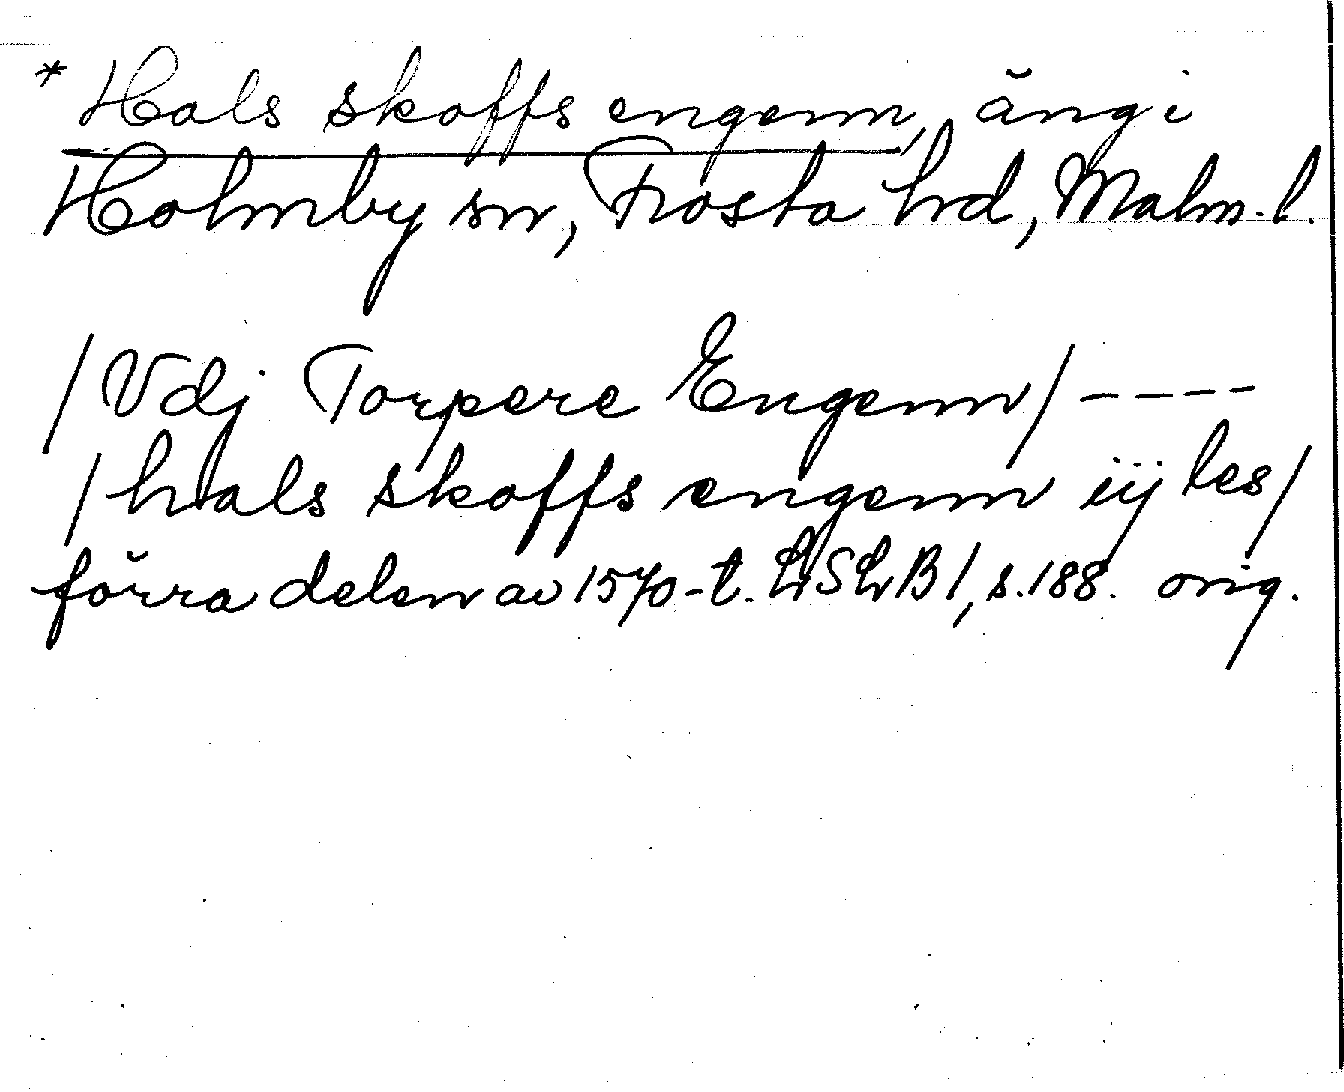 * Hals skoffs engenn, äng i
Holmby sn, Frosta hd, Malm. l.
/Vdj Torpere Engenn/ ----
/hals skoffs engenn iij les/
förra delen av 1570-t. LSLB 1, s. 188. orig.